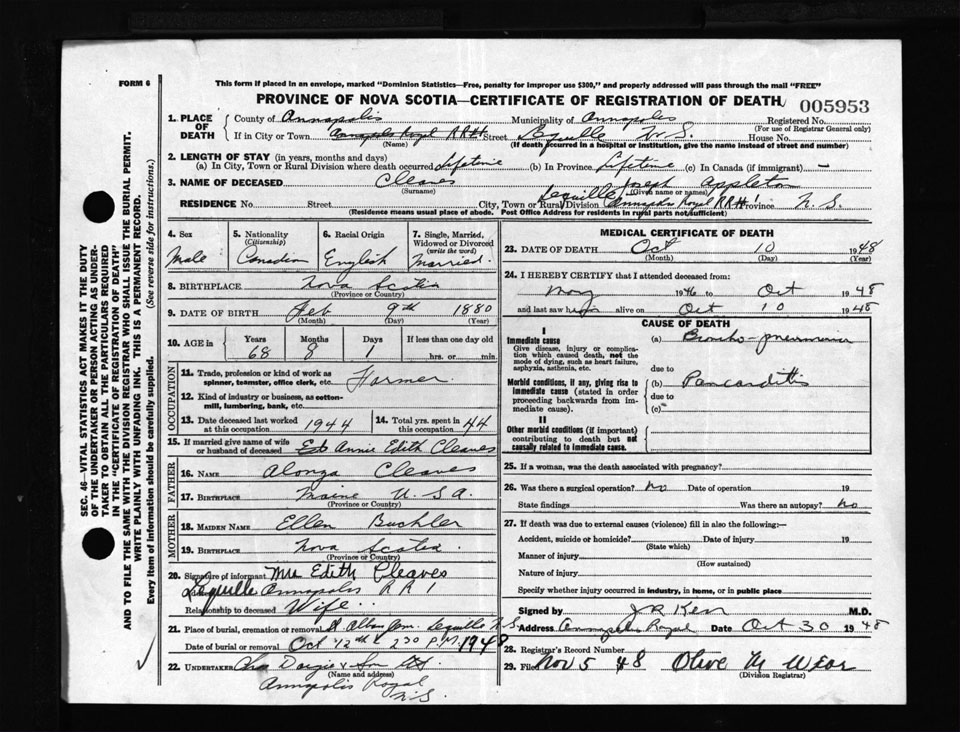 FORM 6
This form if placed in an envelope, marked "Dominion Statistics—Free, penalty for improper use $300," and properly addressed will pass through the mail "FREE"
PROVINCE OF NOVA SCOTIA—CERTIFICATE OF REGISTRATION OF DEATH
005953
1. PLACE OF DEATH
County of Annapolis Municipality of Annapolis Registered No.
(For use of Registrar General only)
If in City or Town Annapolis Royal R R #1 Street Lequille N.S. House No.
(Name) (If death occurred in a hospital or institution, give the name instead of street and number)
2. LENGTH OF STAY (in years, months and days)
(a) In City, Town or Rural Division where death occurred Lifetime (b) In Province Lifetime (c) In Canada (if immigrant) —
3. NAME OF DECEASED Cleaves Joseph Appleton
(Surname) (Given name or names)
RESIDENCE No. Street City, Town or Rural Division Lequille Annapolis Royal R R #1 Province N.S.
(Residence means usual place of abode. Post Office Address for residents in rural parts not sufficient)
4. Sex
Male
5. Nationality
(Citizenship)
Canadian
6. Racial Origin
English
7. Single, Married, Widowed or Divorced
(write the word)
Married.
8. BIRTHPLACE Nova Scotia
(Province or Country)
9. DATE OF BIRTH Feb 9th 1880
(Month) (Day) (Year)
10. AGE in Years Months Days If less than one day old
68 8 1 hrs. or min.
OCCUPATION
11. Trade, profession or kind of work as spinner, teamster, office clerk, etc. Farmer.
12. Kind of industry or business, as cotton-mill, lumbering, bank, etc.
13. Date deceased last worked at this occupation 1944
14. Total yrs. spent in this occupation 44
15. If married give name of wife or husband of deceased Ed Annie Edith Cleaves
FATHER
16. NAME Alonza Cleaves
17. BIRTHPLACE Maine U.S.A.
(Province or Country)
MOTHER
18. MAIDEN NAME Ellen Buchler
19. BIRTHPLACE Nova Scotia.
(Province or Country)
20. Signature of informant Mrs Edith Cleaves
Lequille Annapolis R R 1
Relationship to deceased Wife
21. Place of burial, cremation or removal St Albans Lequille N.S.
Date of burial or removal Oct 12th 2 30 P.M. 1948
22. UNDERTAKER Chas Dargie & Son Ltd
(Name and address)
Annapolis Royal
N.S.
MEDICAL CERTIFICATE OF DEATH
23. DATE OF DEATH Oct 10 1948
(Month) (Day) (Year)
24. I HEREBY CERTIFY that I attended deceased from:
May 1946 to Oct 1948
and last saw him alive on Oct 10 1948
CAUSE OF DEATH
I
Immediate cause
Give disease, injury or complication which caused death, not the mode of dying, such as heart failure, asphyxia, asthenia, etc.
(a) Broncho-pneumonia
due to
Morbid conditions, if any, giving rise to immediate cause (stated in order proceeding backwards from immediate cause).
(b) Pancarditis
due to
(c)
II
Other morbid conditions (if important) contributing to death but not causally related to immediate cause.
25. If a woman, was the death associated with pregnancy?
26. Was there a surgical operation? No Date of operation 19
State findings Was there an autopsy? No
27. If death was due to external causes (violence) fill in also the following:—
Accident, suicide or homicide? Date of injury 19
(State which)
Manner of injury
(How sustained)
Nature of injury
Specify whether injury occurred in industry, in home, or in public place
Signed by J R Kerr M.D.
Address Annapolis Royal Date Oct 30 1948
28. Registrar's Record Number
29. Filed Nov 5 48 Olive M Wear
(Division Registrar)
SEC. 46—VITAL STATISTICS ACT MAKES IT THE DUTY
OF THE UNDERTAKER OR PERSON ACTING AS UNDERTAKER
TO OBTAIN ALL THE PARTICULARS REQUIRED
IN THE "CERTIFICATE OF REGISTRATION OF DEATH"
AND TO FILE THE SAME WITH THE DIVISION REGISTRAR WHO SHALL ISSUE THE BURIAL PERMIT.
WRITE PLAINLY WITH UNFADING INK. THIS IS A PERMANENT RECORD.
Every item of Information should be carefully supplied. (See reverse side for instructions.)